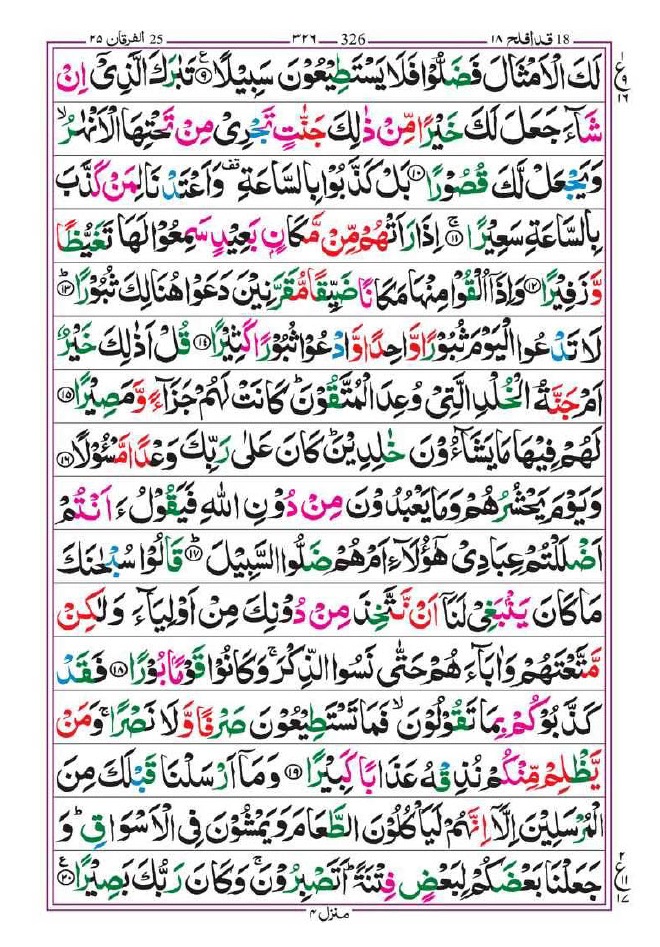 18 قد افلح ۱۸ 326 ۳۲۶ 25 الفرقان ۲۵
لَكَ الْاَمْثَالَ فَضَلُّوْا فَلَا يَسْتَطِيْعُوْنَ سَبِيْلًا ۹ تَبٰرَكَ الَّذِىْۤ اِنْ
ع ۹ ۱۶
شَآءَ جَعَلَ لَكَ خَيْرًا مِّنْ ذٰلِكَ جَنّٰتٍ تَجْرِىْ مِنْ تَحْتِهَا الْاَنْهٰرُ ۙ
وَيَجْعَلْ لَّكَ قُصُوْرًا ۱۰ بَلْ كَذَّبُوْا بِالسَّاعَةِ قف وَاَعْتَدْنَا لِمَنْ كَذَّبَ
بِالسَّاعَةِ سَعِيْرًا ۚ ۱۱ اِذَا رَاَتْهُمْ مِّنْ مَّكَانٍۭ بَعِيْدٍ سَمِعُوْا لَهَا تَغَيُّظًا
وَّزَفِيْرًا ۱۲ وَاِذَاۤ اُلْقُوْا مِنْهَا مَكَانًا ضَيِّقًا مُّقَرَّنِيْنَ دَعَوْا هُنَالِكَ ثُبُوْرًا ؕ ۱۳
لَا تَدْعُوا الْيَوْمَ ثُبُوْرًا وَّاحِدًا وَّادْعُوْا ثُبُوْرًا كَثِيْرًا ۱۴ قُلْ اَذٰلِكَ خَيْرٌ
اَمْ جَنَّةُ الْخُلْدِ الَّتِىْ وُعِدَ الْمُتَّقُوْنَ ؕ كَانَتْ لَهُمْ جَزَآءً وَّمَصِيْرًا ۱۵
لَهُمْ فِيْهَا مَا يَشَآءُوْنَ خٰلِدِيْنَ ؕ كَانَ عَلٰى رَبِّكَ وَعْدًا مَّسْـُٔوْلًا ۱۶
وَيَوْمَ يَحْشُرُهُمْ وَمَا يَعْبُدُوْنَ مِنْ دُوْنِ اللّٰهِ فَيَقُوْلُ ءَاَنْتُمْ
اَضْلَلْتُمْ عِبَادِىْ هٰٓؤُلَآءِ اَمْ هُمْ ضَلُّوا السَّبِيْلَ ؕ ۱۷ قَالُوْا سُبْحٰنَكَ
مَا كَانَ يَنْۢبَغِىْ لَنَاۤ اَنْ نَّتَّخِذَ مِنْ دُوْنِكَ مِنْ اَوْلِيَآءَ وَلٰكِنْ
مَّتَّعْتَهُمْ وَاٰبَآءَهُمْ حَتّٰى نَسُوا الذِّكْرَ ۚ وَكَانُوْا قَوْمًۢا بُوْرًا ۱۸ فَقَدْ
كَذَّبُوْكُمْ بِمَا تَقُوْلُوْنَ ۙ فَمَا تَسْتَطِيْعُوْنَ صَرْفًا وَّلَا نَصْرًا ۚ وَمَنْ
يَّظْلِمْ مِّنْكُمْ نُذِقْهُ عَذَابًا كَبِيْرًا ۱۹ وَمَاۤ اَرْسَلْنَا قَبْلَكَ مِنَ
الْمُرْسَلِيْنَ اِلَّاۤ اِنَّهُمْ لَيَاْكُلُوْنَ الطَّعَامَ وَيَمْشُوْنَ فِى الْاَسْوَاقِ ؕ وَ
جَعَلْنَا بَعْضَكُمْ لِبَعْضٍ فِتْنَةً ؕ اَتَصْبِرُوْنَ ۚ وَكَانَ رَبُّكَ بَصِيْرًا ۲۰
۲ ع ۱۱ ۱۷
منزل ۴